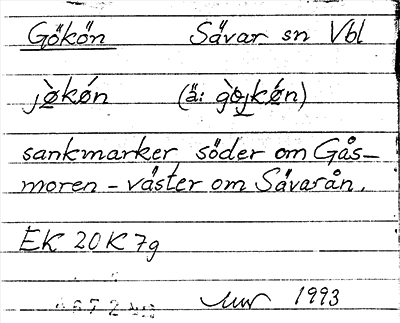 Gökön Sävar sn Vbl
jø̀kǿn (ä: gø̀jkǿn)
sankmarker söder om Gås-
moren - väster om Sävarån.
EK 20K 7g
1993